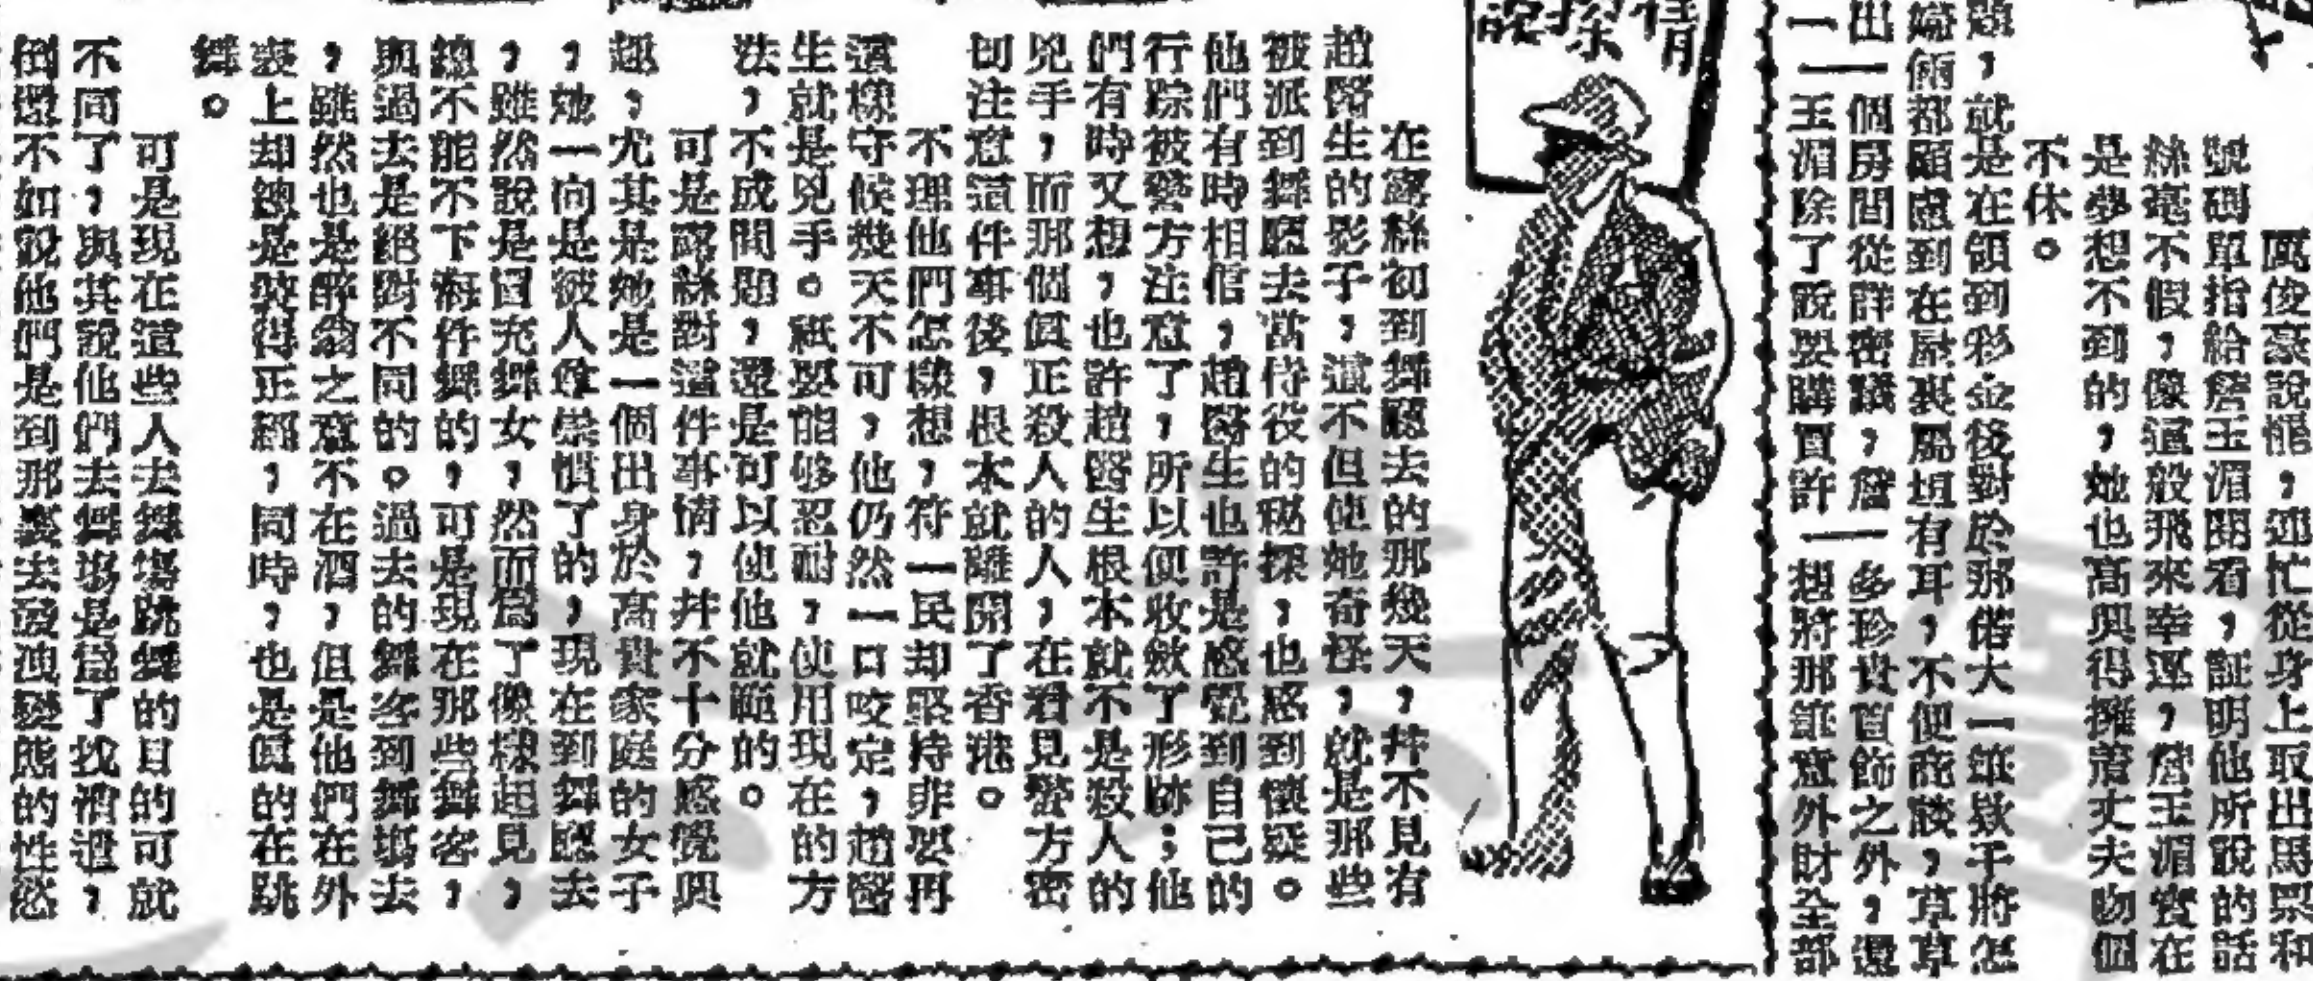 厲俊豪說罷，連忙從身上取出馬票和
號碼單指給詹玉湄開看，証明他所說的話
絲毫不假，像這般飛來幸運，詹玉湄實在
是夢想不到的，她也高興得擁蕭丈夫吻個
不休。
題，就是在領到彩金後對於那偌大一筆欵子將怎
婦倆都顧慮到在屋裏屬垣有耳，不便商談，草草
出一個房間從詳密議，詹一多珍貴首飾之外，還
一一王湄除了說要購買許一想將那筆意外財全部
情探說
在露絲初到舞廳去的那幾天，并不見有
趙醫生的影子，這不但使她奇怪，就是那些
被派到舞廳去當侍役的秘探，也感到懷疑。
他們有時相信，趙醫生也許是感覺到自己的
行踪被警方注意了，所以便收斂了形跡；他
們有時又想，也許趙醫生根本就不是殺人的
兇手，而那個眞正殺人的人，在看見警方密
切注意這件事後，根本就離開了香港。
不理他們怎樣想，符一民却堅持非要再
這樣守候幾天不可，他仍然一口咬定，趙醫
生就是兇手。祇要能够忍耐，使用現在的方
法，不成問題，還是可以使他就範的。
可是露絲對這件事情，并不十分感覺興
趣，尤其是她是一個出身於高貴家庭的女子
，她一向是被人尊崇慣了的，現在到舞廳去
，雖然說是冒充舞女，然而爲了像樣起見，
總不能不下海伴舞的，可是現在那些舞客，
與過去是絕對不同的。過去的舞客到舞塲去
，雖然也是醉翁之意不在酒，但是他們在外
表上却總是裝得正經，同時，也是眞的在跳
舞。
可是現在這些人去舞塲跳舞的目的可就
不同了，與其說他們去舞塲是爲了找消遣，
倒還不如說他們是到那裏去發洩變態的性慾